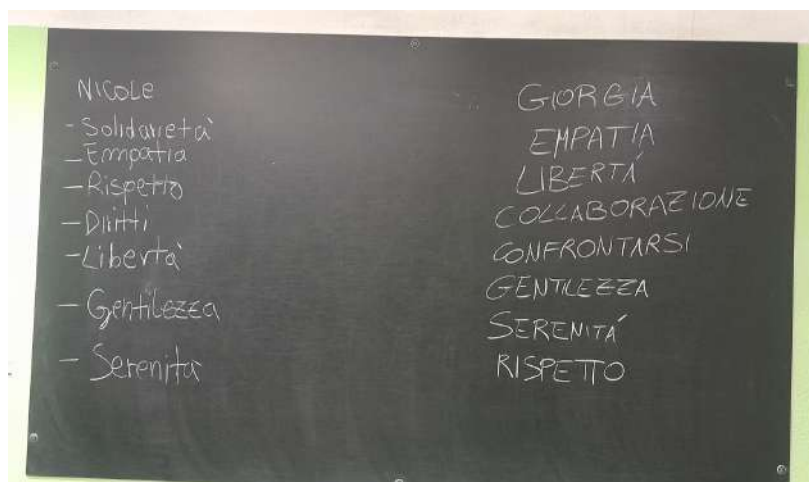 NICOLE
- Solidarietà
- Empatia
- Rispetto
- Diritti
- Libertà
- Gentilezza
- Serenità
GIORGIA
EMPATIA
LIBERTÁ
COLLABORAZIONE
CONFRONTARSI
GENTILEZZA
SERENITÁ
RISPETTO